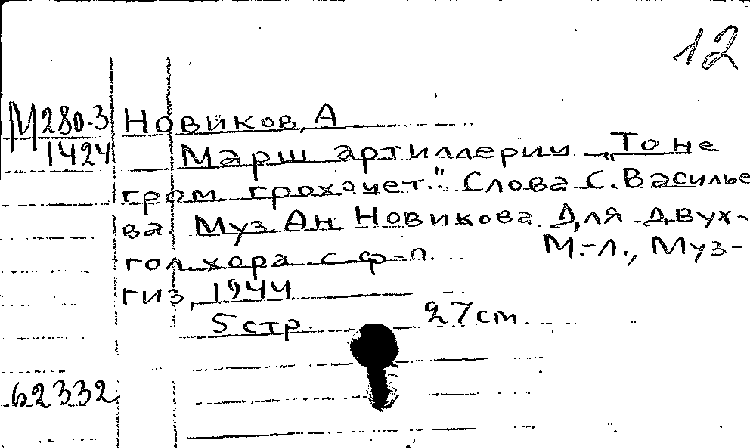 12
М280.3 Новиков, А
1424 Марш артиллерии „То не
гром грохочет." Слова С. Василье
ва. Муз Ан Новикова. Для двух-
гол. хора с ф-п. М.-Л., Муз-
гиз, 1944
5 стр. 27 см.
62332